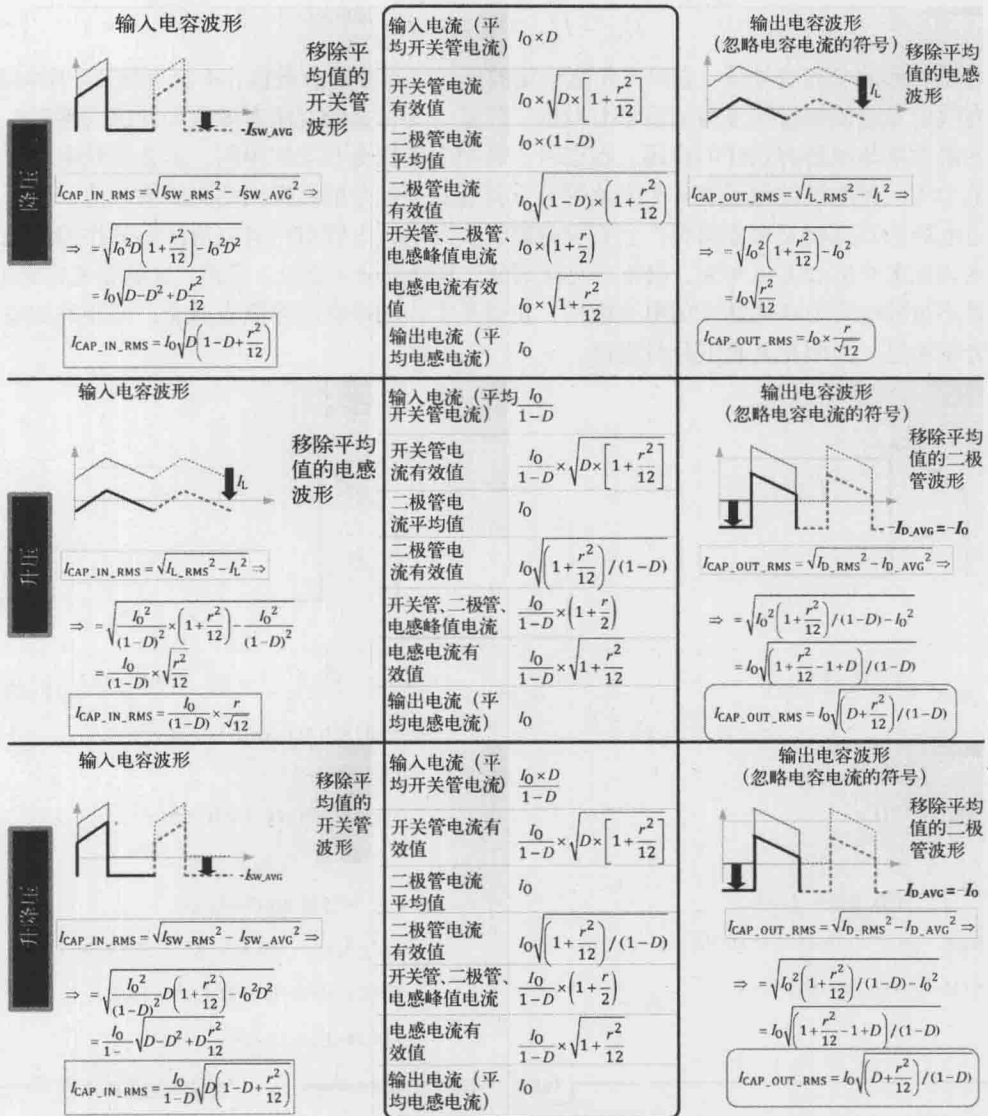 降压
输入电容波形
移除平
均值的
开关管
波形
-I_SW_AVG
I_CAP_IN_RMS = √(I_SW_RMS² - I_SW_AVG²) ⇒
⇒ = √(I_O²D(1+r²/12) - I_O²D²)
= I_O√(D-D²+D r²/12)
I_CAP_IN_RMS = I_O√(D(1-D+r²/12))
输入电流（平
均开关管电流） I_O×D
开关管电流
有效值 I_O×√(D×[1+r²/12])
二极管电流
平均值 I_O×(1-D)
二极管电流
有效值 I_O√((1-D)×(1+r²/12))
开关管、二极管、
电感峰值电流 I_O×(1+r/2)
电感电流有效
值 I_O×√(1+r²/12)
输出电流（平
均电感电流） I_O
输出电容波形
(忽略电容电流的符号)
移除平均
值的电感
波形
I_L
I_CAP_OUT_RMS = √(I_L_RMS² - I_L²) ⇒
⇒ = √(I_O²(1+r²/12) - I_O²)
= I_O√(r²/12)
I_CAP_OUT_RMS = I_O × r/√12
升压
输入电容波形
移除平均
值的电感
波形
I_L
I_CAP_IN_RMS = √(I_L_RMS² - I_L²) ⇒
⇒ = √(I_O²/(1-D)² × (1+r²/12) - I_O²/(1-D)²)
= I_O/(1-D) × √(r²/12)
I_CAP_IN_RMS = I_O/(1-D) × r/√12
输入电流（平均
开关管电流） I_O/(1-D)
开关管电
流有效值 I_O/(1-D) × √(D×[1+r²/12])
二极管电
流平均值 I_O
二极管电
流有效值 I_O√((1+r²/12)/(1-D))
开关管、二极管、
电感峰值电流 I_O/(1-D) × (1+r/2)
电感电流有
效值 I_O/(1-D) × √(1+r²/12)
输出电流（平
均电感电流） I_O
输出电容波形
(忽略电容电流的符号)
移除平均
值的二极
管波形
-I_D_AVG = -I_O
I_CAP_OUT_RMS = √(I_D_RMS² - I_D_AVG²) ⇒
⇒ = √(I_O²(1+r²/12)/(1-D) - I_O²)
= I_O√((1+r²/12-1+D)/(1-D))
I_CAP_OUT_RMS = I_O√((D+r²/12)/(1-D))
升降压
输入电容波形
移除平
均值的
开关管
波形
-I_SW_AVG
I_CAP_IN_RMS = √(I_SW_RMS² - I_SW_AVG²) ⇒
⇒ = √(I_O²/(1-D)² D(1+r²/12) - I_O²D²)
= I_O/(1-) √(D-D²+D r²/12)
I_CAP_IN_RMS = I_O/(1-D) √(D(1-D+r²/12))
输入电流（平
均开关管电流） I_O×D/(1-D)
开关管电流有
效值 I_O/(1-D) × √(D×[1+r²/12])
二极管电流
平均值 I_O
二极管电流
有效值 I_O√((1+r²/12)/(1-D))
开关管、二极管、
电感峰值电流 I_O/(1-D) × (1+r/2)
电感电流有
效值 I_O/(1-D) × √(1+r²/12)
输出电流（平
均电感电流） I_O
输出电容波形
(忽略电容电流的符号)
移除平均
值的二极
管波形
-I_D_AVG = -I_O
I_CAP_OUT_RMS = √(I_D_RMS² - I_D_AVG²) ⇒
⇒ = √(I_O²(1+r²/12)/(1-D) - I_O²)
= I_O√((1+r²/12-1+D)/(1-D))
I_CAP_OUT_RMS = I_O√((D+r²/12)/(1-D))